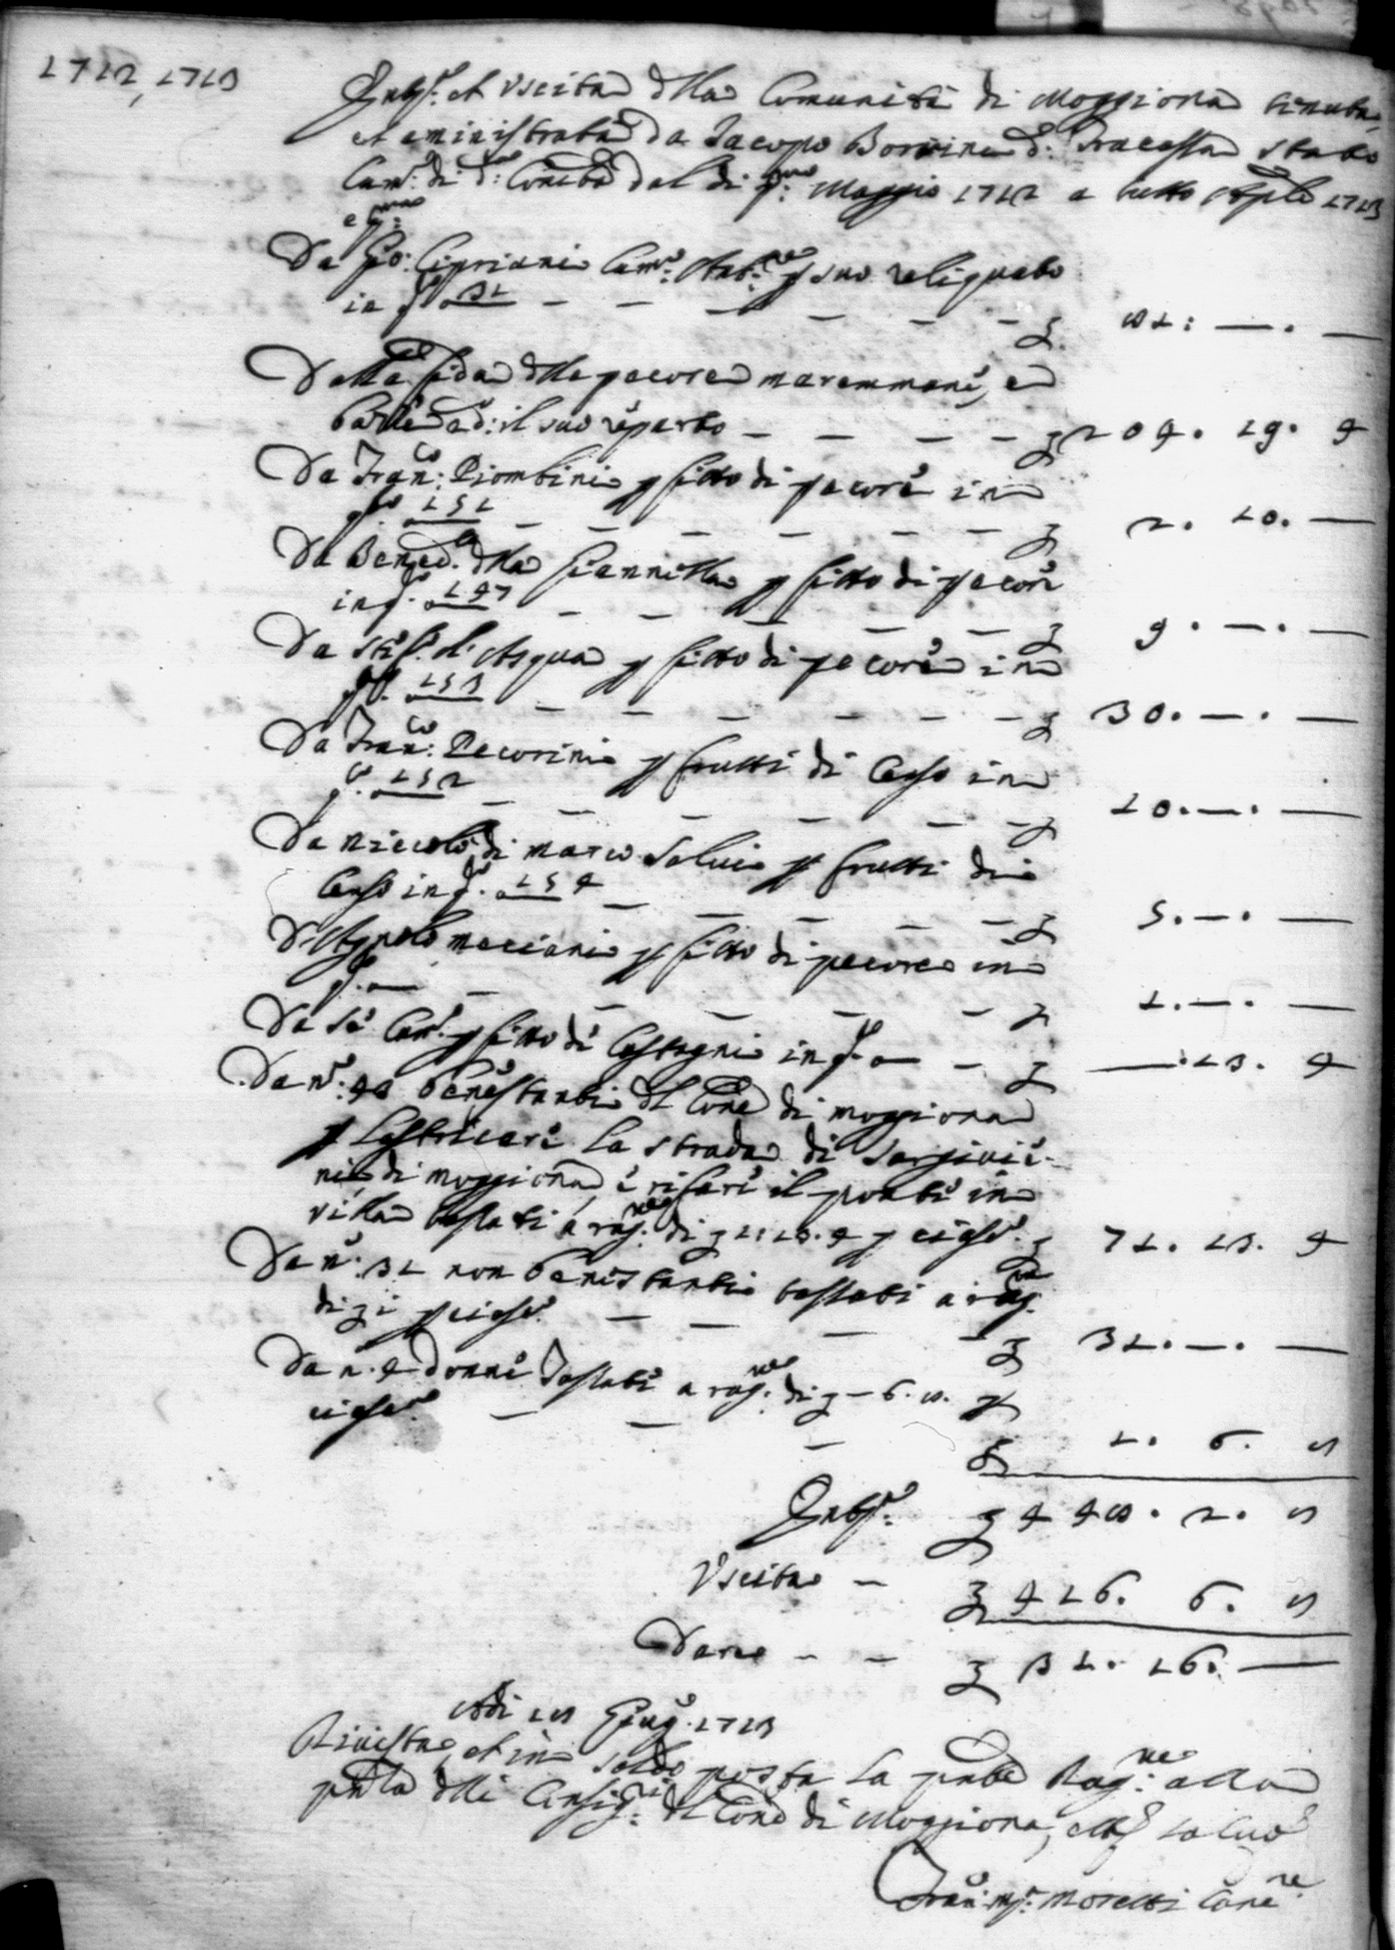 1712, 1713
Entr.ª et Uscita dlla Comunità di Moggiona tenuta,
et aministrata da Jacopo Borrini d.º Fracassa stato
Cam.º di d.ª Com.tà dal di p.mo Maggio 1712 a tutto Ap.le 1713
e p.ma
Da Gio: Cipriani Cam.º Ant.re p suo reliquato
in q.º 31 — — — — — — £ 81: —. —
Dalla fida dlle pecore maremmane, e
il suo reparto — — — — £ 204. 19. 4
Da Fran.co Piombini p fitto di pecore in
q.º 151 — — — — — — £ 2. 10. —
Da Bened.º dlla Giannella p fitto di pecore
in q.º 147 — — — — — £ 9. —. —
Da Stef.º d' Acqua p fitto di pecore in
q.º 153 — — — — — — £ 30. —. —
Da Fran.co Pecorini p frutti di Censo in
q.º 152 — — — — — — £ 10. —. —
Da Niccolò di Marco Salvi p frutti di
Censo in q.º 154 — — — — — £ 5. —. —
D' Agnolo Mariani p fitto di pecore in
q.º — — — — — — £ 1. —. —
Da Sè Cam.º p fitto di Castagni in q.º — — £ —. 13. 4
Da n.º 43 benestanti dl Com.e di Moggiona
p lastricare la strada di
di Moggiona, e rifare il ponte in
villa tassati a rag.ne di £ 1: 13. 4 p ciasc.º £ 71. 13. 4
Da n.º 31 non benestanti tassati a rag.ne
di £ 1 p ciasc.º — — — — £ 31. —. —
Da n.º 4 donne Tassate a rag.ne di £ — 6. 8. p
ciasc.ª — — — £ 1. 6. 8
Entr.ª £ 448. 2. 8
Uscita — £ 416. 6. 8
Dare — — £ 31. 16. —
Adi 18 Giug.º 1713
Rivista, et in saldo posta la pnte Rag.ne alla
pnza dlli Consig.ri dl Com.e di Moggiona, salvo
Fran.º M.ª Moretti Canc.re